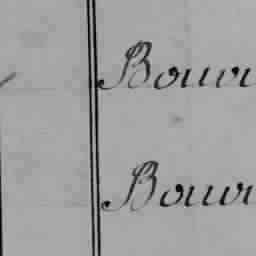 Bouvi
Bouvi